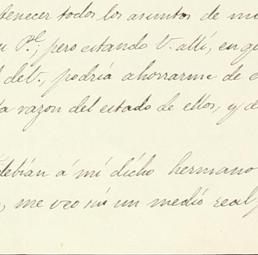 tenecer todos los asuntos de mi
u P.e; pero estando V. allí, en qu
l de V., podría ahorrarme de e
ta razon del estado de ellos, y de
debían á mi dicho hermano
, me veo sin un medio real,